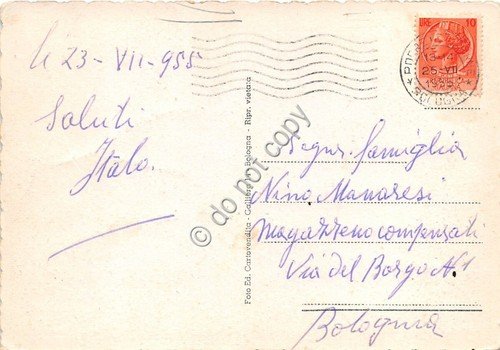 li 23-VII-955
Saluti
Italo.
Foto Ed. Cartovendita - Bologna - Ripr. vietata
LIRE 10
13-14
25-VII
1955
BOLOGNA
do not copy
Spgr. famiglia
Nino Manaresi
Magazzeno compensati
Via del Borgo N°1
Bologna